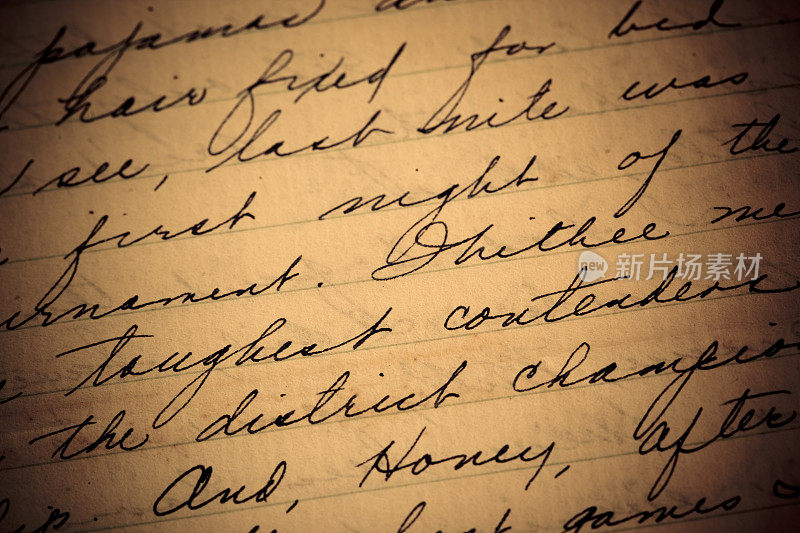 pajamas an
hair fixed for bed
I see, last nite was
first night of the
urnament. Ihithee me
toughest contenders
the district champio
ip. And, Honey, after
last games &
new 新片场素材